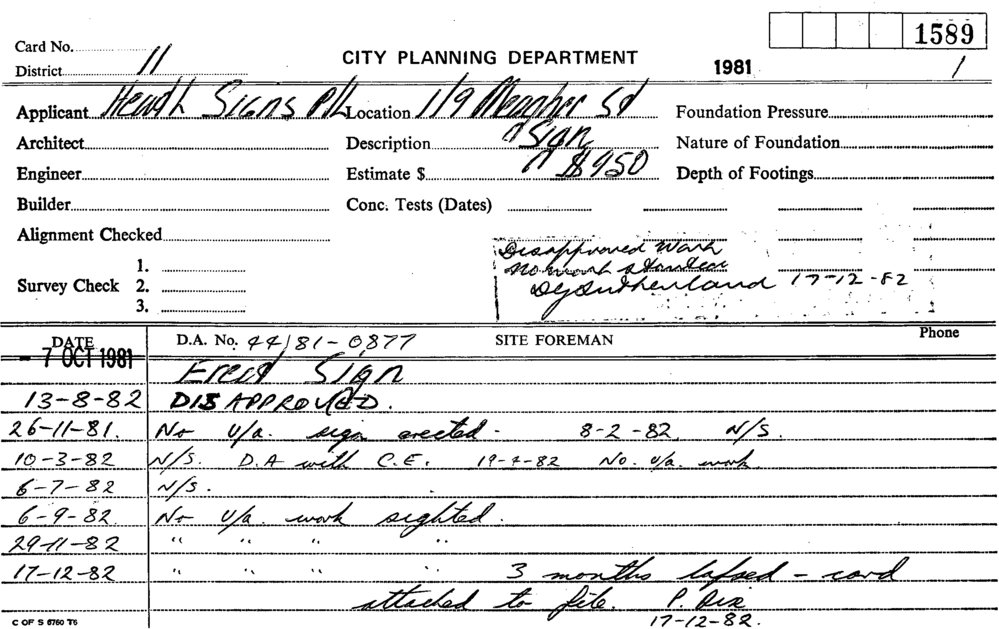 1589
Card No.
District 11
CITY PLANNING DEPARTMENT
1981
1
Applicant Heath Signs P/L Location 1/9 Meagher St Foundation Pressure
Architect Description Sign Nature of Foundation
Engineer Estimate $ $950 Depth of Footings
Builder Conc. Tests (Dates)
Alignment Checked
Disapproved Work
No work started
Sutherland 17-12-82
Survey Check 1.
2.
3.
DATE D.A. No. 44/81-0877 SITE FOREMAN Phone
- 7 OCT 1981 Erect Sign
13-8-82 DISAPPROVED.
26-11-81. No u/a. sign erected - 8-2-82 N/S.
10-3-82 N/S. D.A with C.E. 19-4-82 No. u/a. work
6-7-82 N/S.
6-9-82. No u/a. work sighted.
29-11-82 " " " "
17-12-82 " " " " 3 months lapsed - card
attached to file. P. Dix
17-12-82.
C OF S 6760 T6